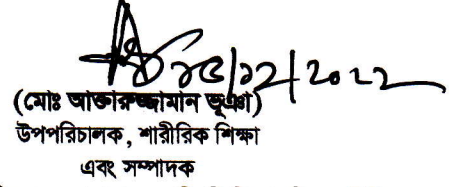 ১৫/১২/২০২২
(মোঃ আক্তারুজ্জামান ভূঞা)
উপপরিচালক, শারীরিক শিক্ষা
এবং সম্পাদক